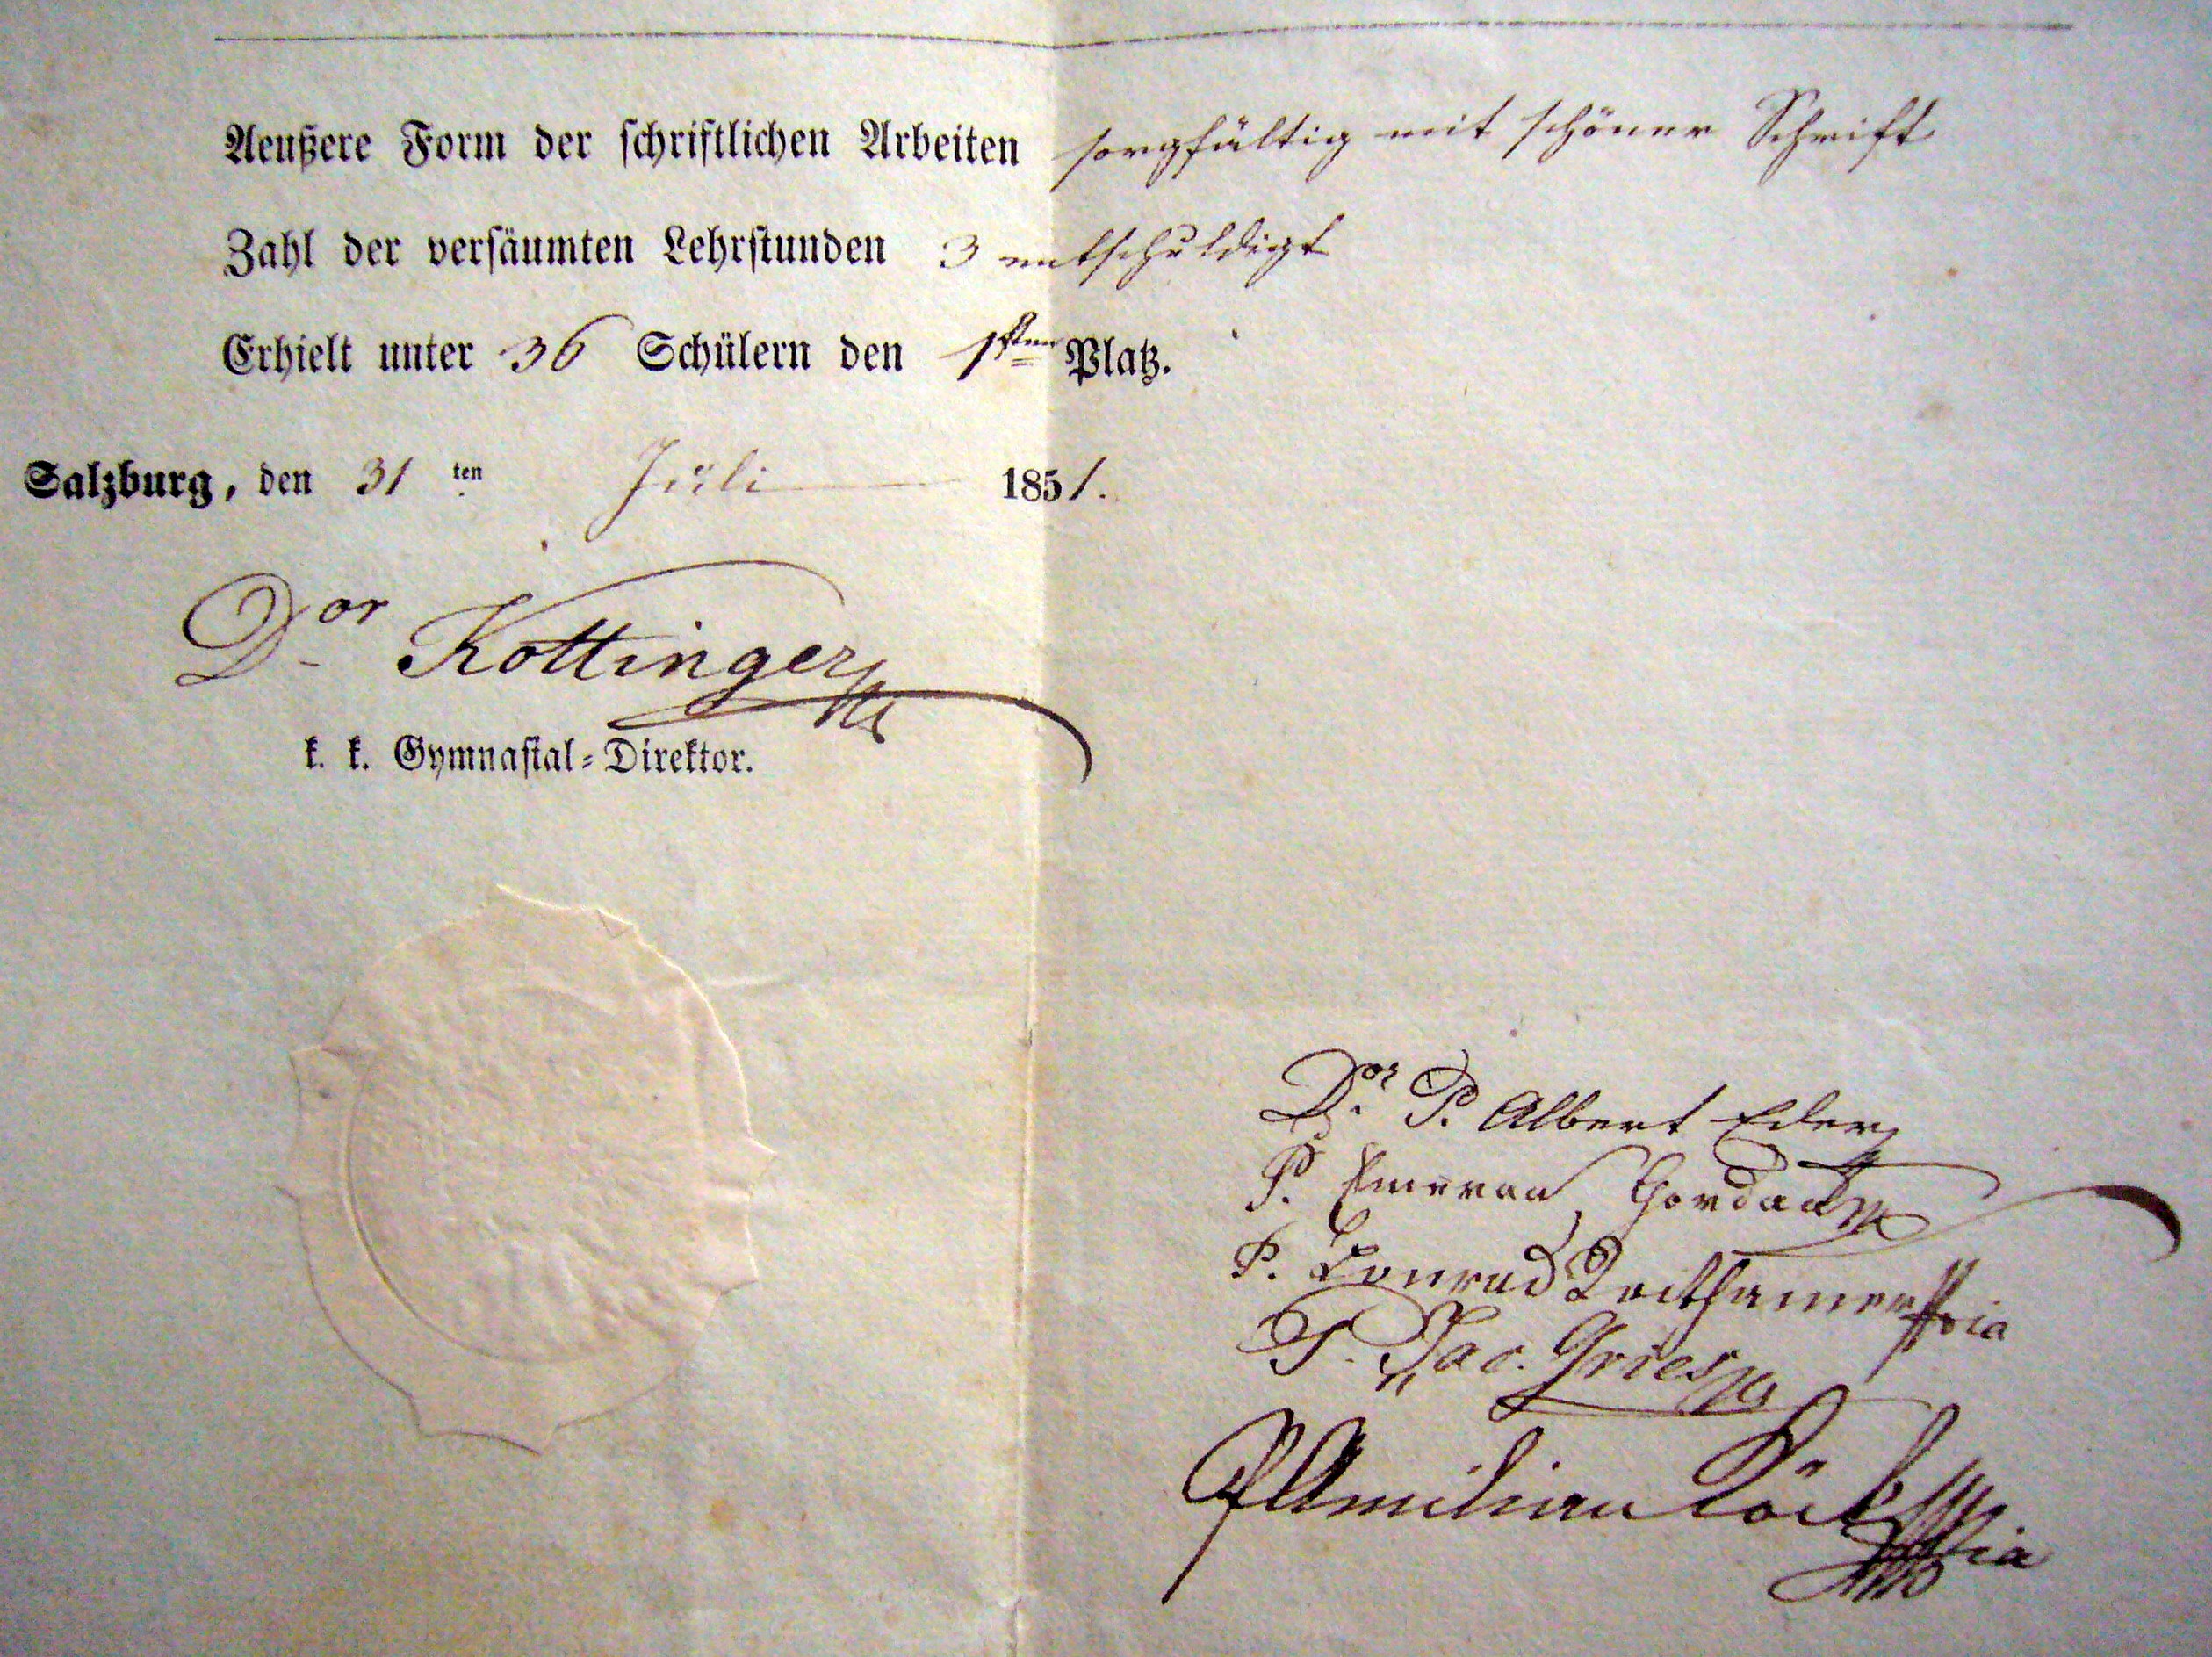 Aeußere Form der schriftlichen Arbeiten sorgfältig mit schöner Schrift
Zahl der versäumten Lehrstunden 3 entschuldigt
Erhielt unter 36 Schülern den 1sten Platz.
Salzburg, den 31 ten Juli 1851.
Dor Kottinger
k. k. Gymnasial-Direktor.
Dor P. Albert Eder
P.
P. Conrad
P. Jac. Gries
P Amilian Köck